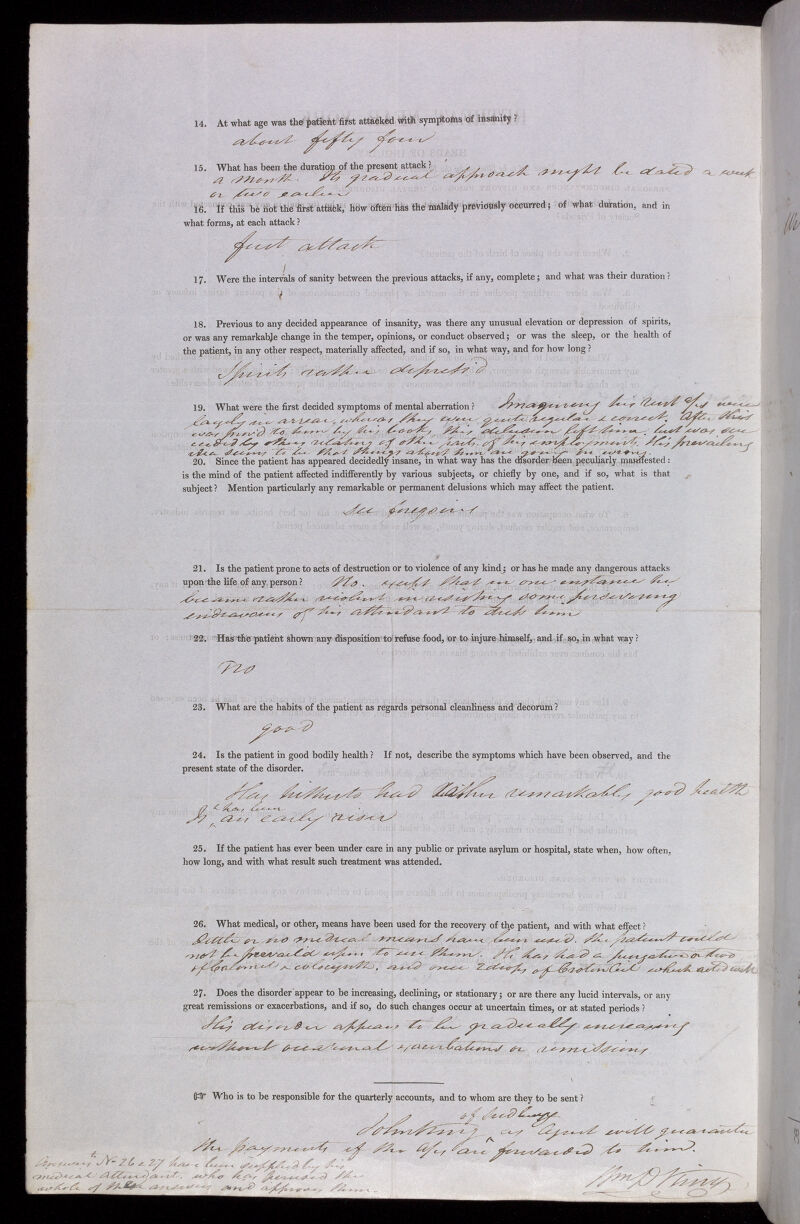 14. At what age was the patient first attacked with symptoms of insanity?
about fifty four
15. What has been the duration of the present attack?
a month. Its gradual approach might be dated a week
or two earlier
16. If this be not the first attack, how often has the malady previously occurred; of what duration, and in
what forms, at each attack?
first attack
17. Were the intervals of sanity between the previous attacks, if any, complete; and what was their duration?
18. Previous to any decided appearance of insanity, was there any unusual elevation or depression of spirits,
or was any remarkable change in the temper, opinions, or conduct observed; or was the sleep, or the health of
the patient, in any other respect, materially affected, and if so, in what way, and for how long?
Spirits rather depress'd
19. What were the first decided symptoms of mental aberration? Imagining his rent a/cs were
largely in arrear, whereas they were quite regular & correct. After this
was prov'd to him by his books, this delusion left him, but was suc
ceeded by others relating to other parts of his employment. His prevailing
idea seems to be that things about him are going on wrong.
20. Since the patient has appeared decidedly insane, in what way has the disorder been peculiarly manifested:
is the mind of the patient affected indifferently by various subjects, or chiefly by one, and if so, what is that
subject? Mention particularly any remarkable or permanent delusions which may affect the patient.
see foregoing
21. Is the patient prone to acts of destruction or to violence of any kind; or has he made any dangerous attacks
upon the life of any person? No. except that in one instance he
became rather violent in resisting some persevering
endeavours of his attendant to dress him
22. Has the patient shown any disposition to refuse food, or to injure himself, and if so, in what way?
no
23. What are the habits of the patient as regards personal cleanliness and decorum?
good
24. Is the patient in good bodily health? If not, describe the symptoms which have been observed, and the
present state of the disorder.
Has hitherto had rather remarkably good health
Is & has been an early riser
25. If the patient has ever been under care in any public or private asylum or hospital, state when, how often,
how long, and with what result such treatment was attended.
26. What medical, or other, means have been used for the recovery of the patient, and with what effect?
Little or no medical means have been used. The patient could
not be prevail'd upon to use them. He has had a purgative or two
of Calomel & colocynth, and once 2 drops of Croton oil which acted well
27. Does the disorder appear to be increasing, declining, or stationary; or are there any lucid intervals, or any
great remissions or exacerbations, and if so, do such changes occur at uncertain times, or at stated periods?
His disorder appears to be gradually increasing
without occasional exacerbations or remissions
☞ Who is to be responsible for the quarterly accounts, and to whom are they to be sent?
of Sudbury
John King as Agent will guarantee
the payments if the a/cs are forwarded to him.
Answers Nos 26 & 27 have been supplied by his
medical attendant, who has perused the
whole of the answers and approves them.
Wm D King